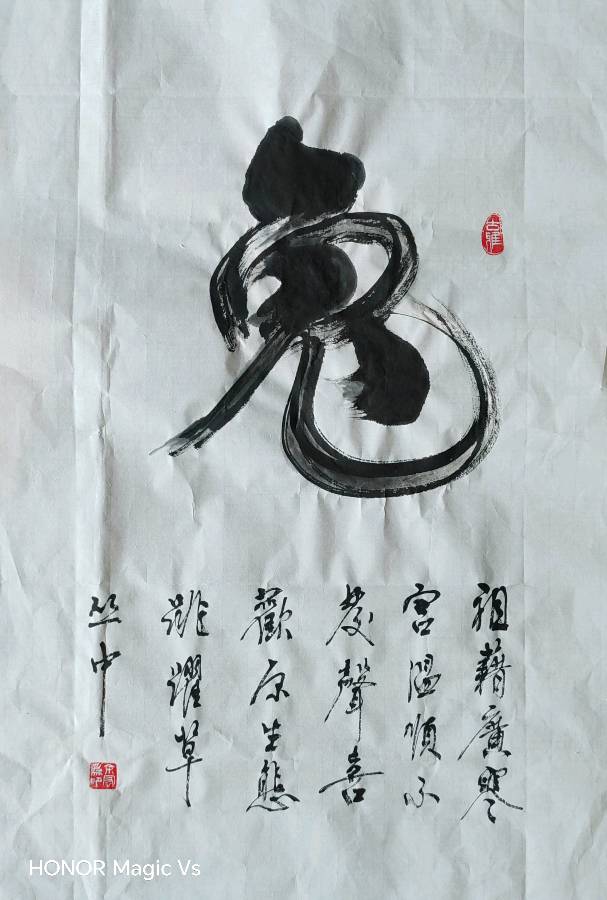 兔
古雅
祖藉廣寒
宮溫順不
發聲喜
歡原生態
跳躍草
丛中
HONOR Magic Vs